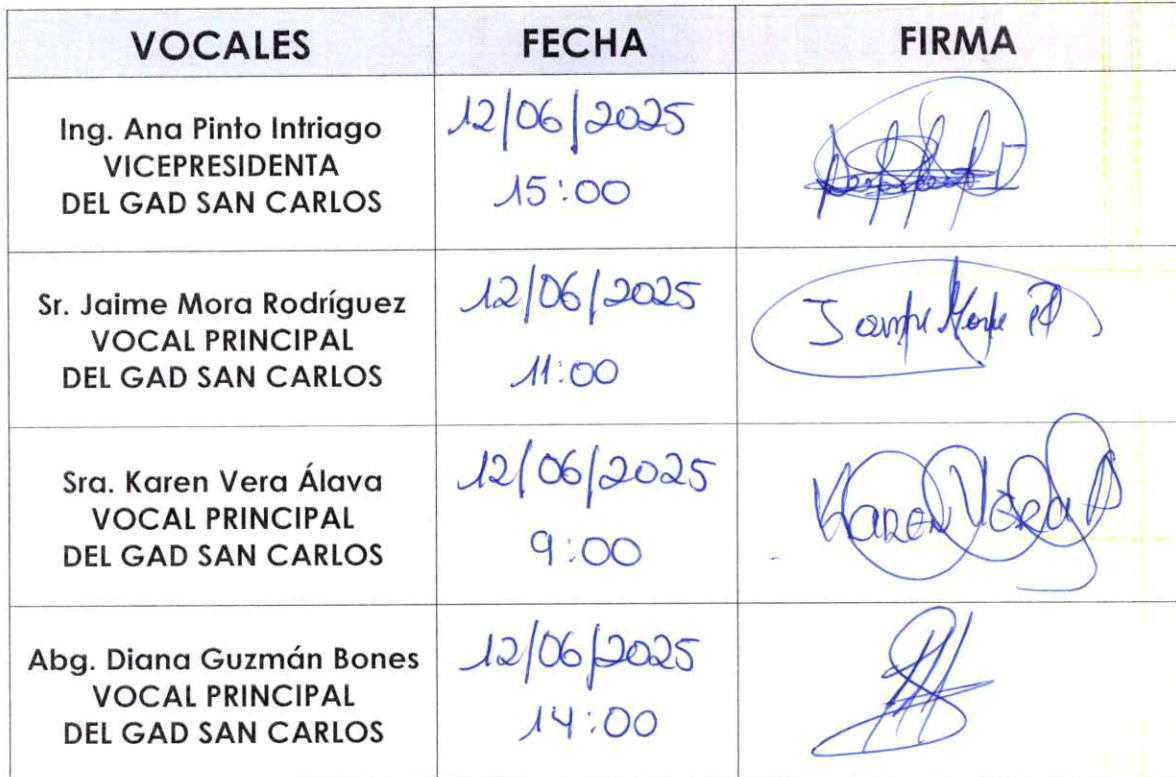 VOCALES FECHA FIRMA
Ing. Ana Pinto Intriago
VICEPRESIDENTA
DEL GAD SAN CARLOS
12/06/2025
15:00
Sr. Jaime Mora Rodríguez
VOCAL PRINCIPAL
DEL GAD SAN CARLOS
12/06/2025
11:00
Sra. Karen Vera Álava
VOCAL PRINCIPAL
DEL GAD SAN CARLOS
12/06/2025
9:00
Karen Vera A
Abg. Diana Guzmán Bones
VOCAL PRINCIPAL
DEL GAD SAN CARLOS
12/06/2025
14:00